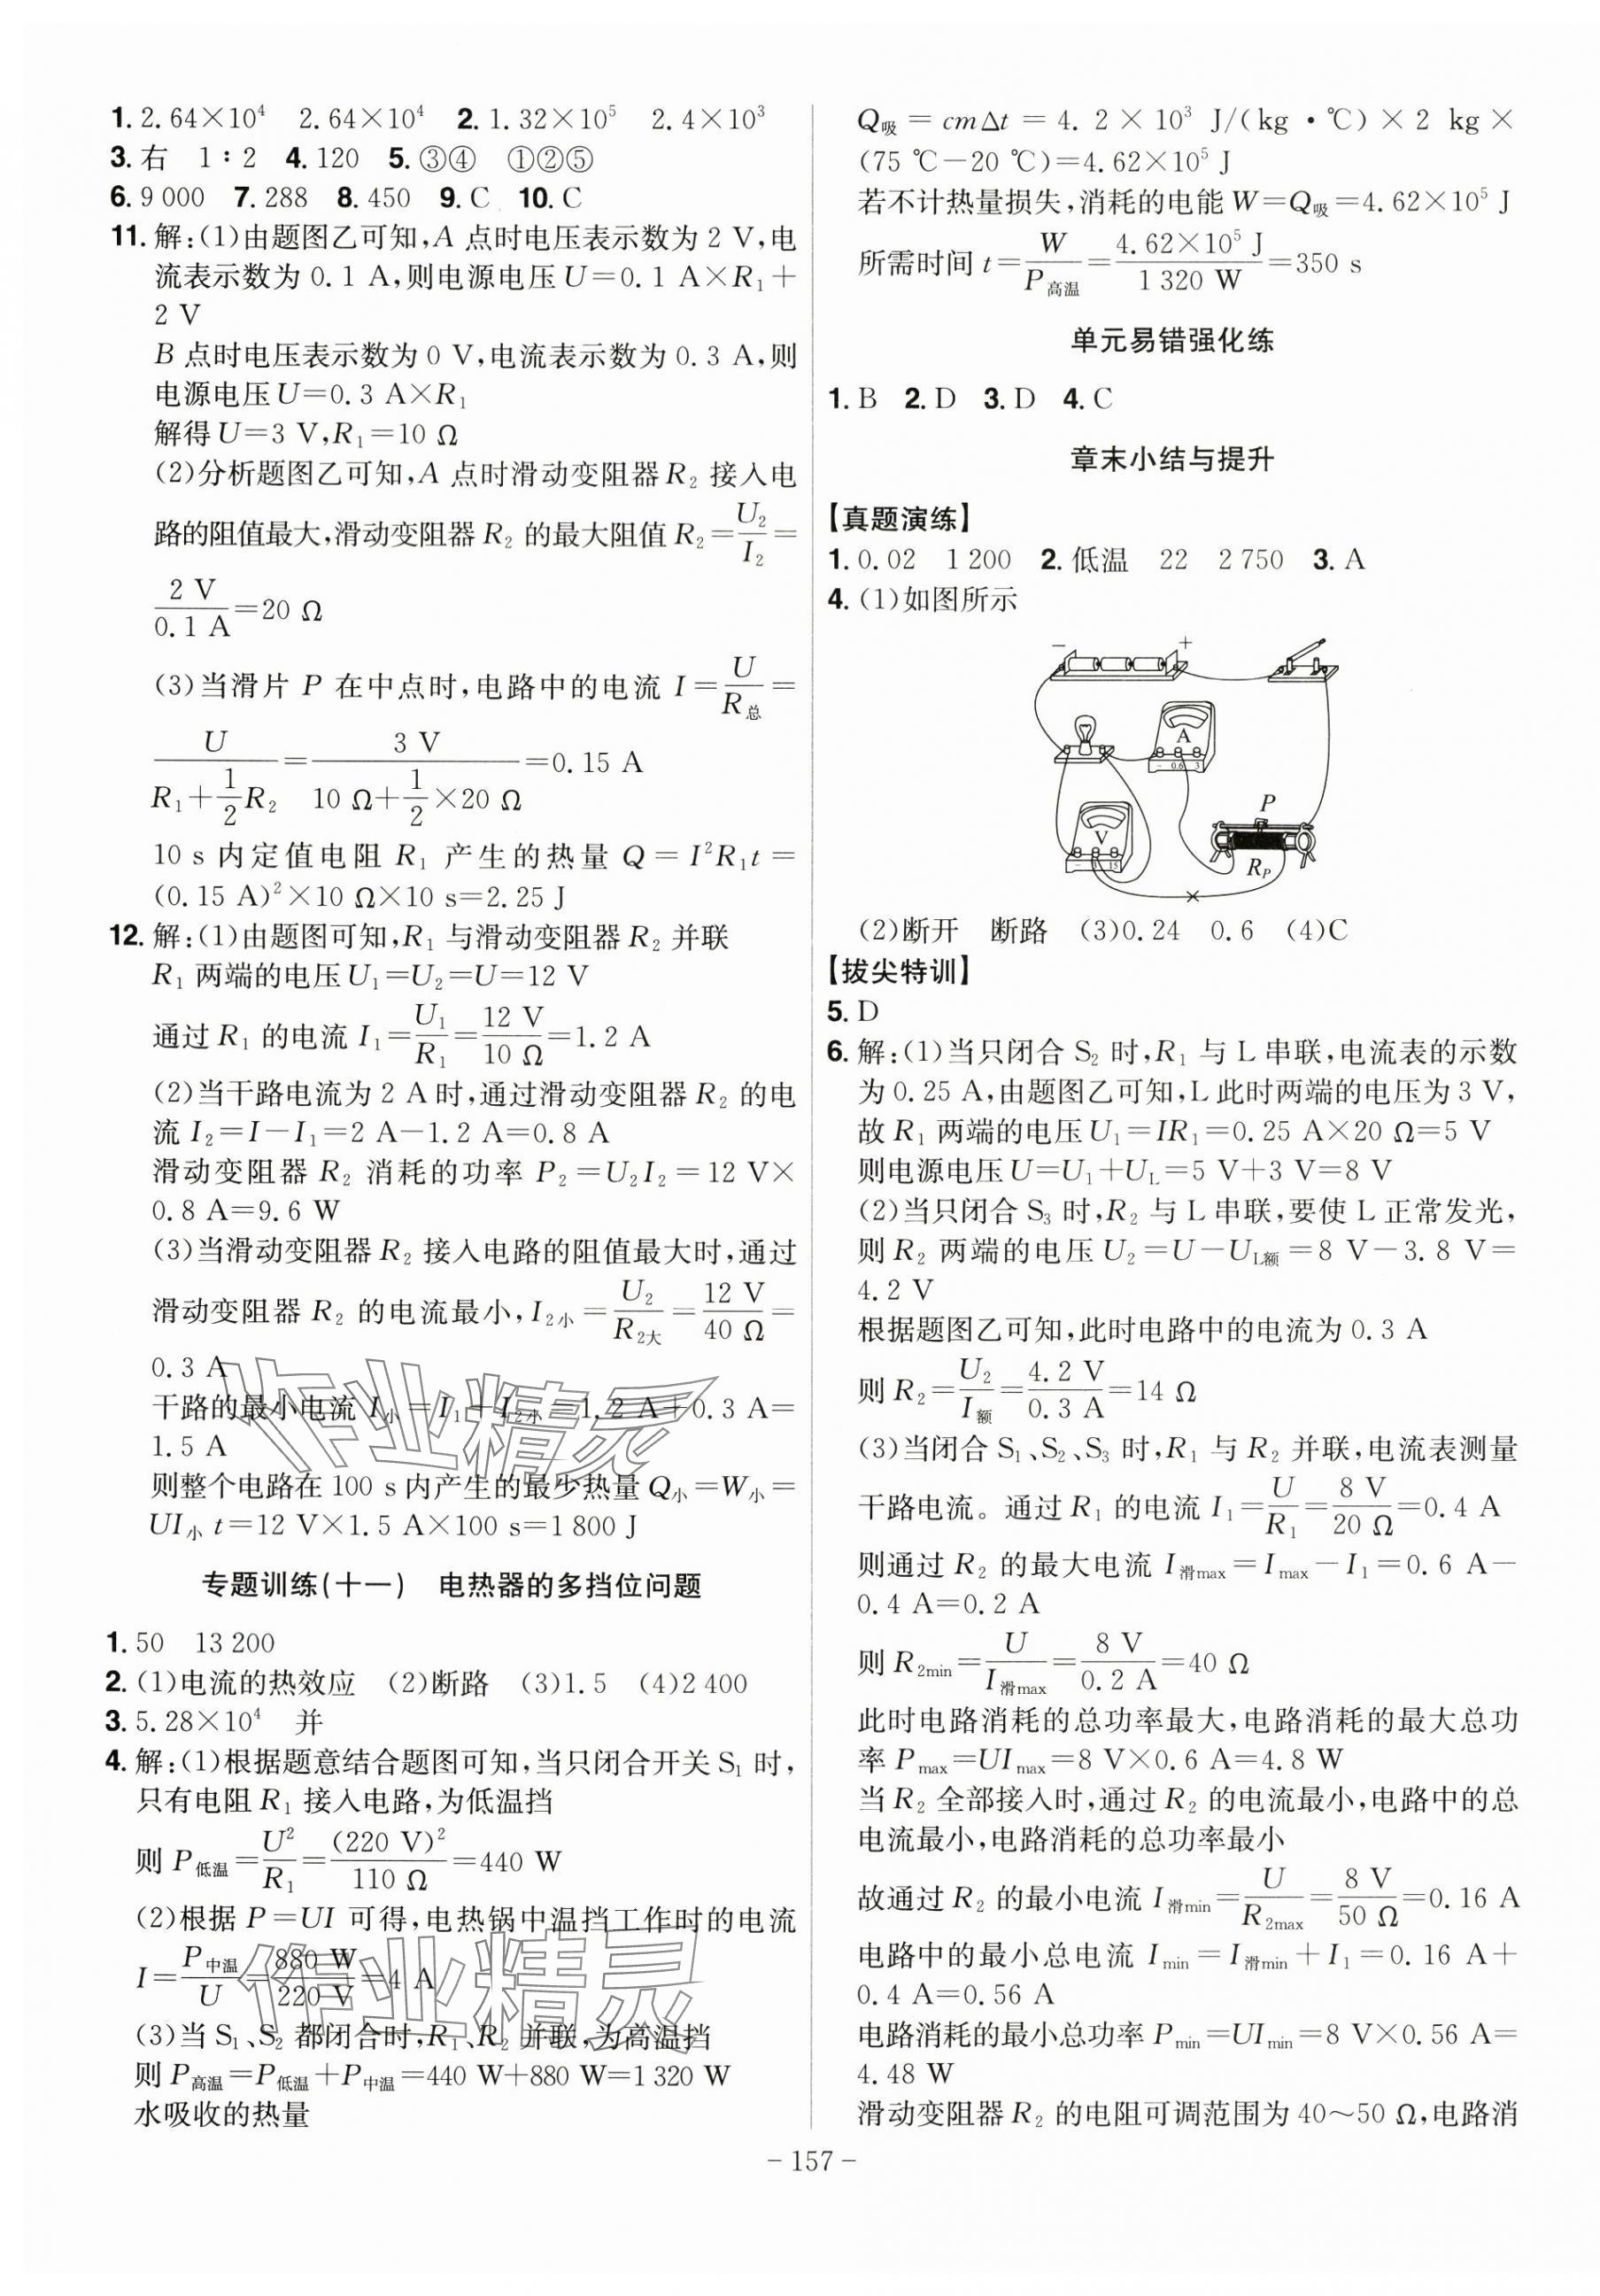 1. 2.64×10⁴　2.64×10⁴　2. 1.32×10⁵　2.4×10³
3. 右　1∶2　4. 120　5. ③④　①②⑤
6. 9 000　7. 288　8. 450　9. C　10. C
11. 解:(1)由题图乙可知,A 点时电压表示数为 2 V,电
流表示数为 0.1 A,则电源电压 U=0.1 A×R₁+
2 V
B 点时电压表示数为 0 V,电流表示数为 0.3 A,则
电源电压 U=0.3 A×R₁
解得 U=3 V,R₁=10 Ω
(2)分析题图乙可知,A 点时滑动变阻器 R₂ 接入电
路的阻值最大,滑动变阻器 R₂ 的最大阻值 R₂=U₂/I₂=
2 V/0.1 A=20 Ω
(3)当滑片 P 在中点时,电路中的电流 I=U/R总=
U/(R₁+1/2 R₂)=3 V/(10 Ω+1/2×20 Ω)=0.15 A
10 s 内定值电阻 R₁ 产生的热量 Q=I²R₁t=
(0.15 A)²×10 Ω×10 s=2.25 J
12. 解:(1)由题图可知,R₁ 与滑动变阻器 R₂ 并联
R₁ 两端的电压 U₁=U₂=U=12 V
通过 R₁ 的电流 I₁=U₁/R₁=12 V/10 Ω=1.2 A
(2)当干路电流为 2 A 时,通过滑动变阻器 R₂ 的电
流 I₂=I-I₁=2 A-1.2 A=0.8 A
滑动变阻器 R₂ 消耗的功率 P₂=U₂I₂=12 V×
0.8 A=9.6 W
(3)当滑动变阻器 R₂ 接入电路的阻值最大时,通过
滑动变阻器 R₂ 的电流最小,I₂小=U₂/R₂大=12 V/40 Ω=
0.3 A
干路的最小电流 I小=I₁+I₂小=1.2 A+0.3 A=
1.5 A
则整个电路在 100 s 内产生的最少热量 Q小=W小=
UI小 t=12 V×1.5 A×100 s=1 800 J
专题训练(十一)　电热器的多挡位问题
1. 50　13 200
2. (1)电流的热效应　(2)断路　(3)1.5　(4)2 400
3. 5.28×10⁴　并
4. 解:(1)根据题意结合题图可知,当只闭合开关 S₁ 时,
只有电阻 R₁ 接入电路,为低温挡
则 P低温=U²/R₁=(220 V)²/110 Ω=440 W
(2)根据 P=UI 可得,电热锅中温挡工作时的电流
I=P中温/U=880 W/220 V=4 A
(3)当 S₁、S₂ 都闭合时,R₁、R₂ 并联,为高温挡
则 P高温=P低温+P中温=440 W+880 W=1 320 W
水吸收的热量
Q吸=cmΔt=4.2×10³ J/(kg·℃)×2 kg×
(75 ℃-20 ℃)=4.62×10⁵ J
若不计热量损失,消耗的电能 W=Q吸=4.62×10⁵ J
所需时间 t=W/P高温=4.62×10⁵ J/1 320 W=350 s
单元易错强化练
1. B　2. D　3. D　4. C
章末小结与提升
【真题演练】
1. 0.02　1 200　2. 低温　22　2 750　3. A
4. (1)如图所示
−　+
A
− 0.6 3
P
V
− 3 15
R_P
×
(2)断开　断路　(3)0.24　0.6　(4)C
【拔尖特训】
5. D
6. 解:(1)当只闭合 S₂ 时,R₁ 与 L 串联,电流表的示数
为 0.25 A,由题图乙可知,L 此时两端的电压为 3 V,
故 R₁ 两端的电压 U₁=IR₁=0.25 A×20 Ω=5 V
则电源电压 U=U₁+U_L=5 V+3 V=8 V
(2)当只闭合 S₃ 时,R₂ 与 L 串联,要使 L 正常发光,
则 R₂ 两端的电压 U₂=U-U_L额=8 V-3.8 V=
4.2 V
根据题图乙可知,此时电路中的电流为 0.3 A
则 R₂=U₂/I额=4.2 V/0.3 A=14 Ω
(3)当闭合 S₁、S₂、S₃ 时,R₁ 与 R₂ 并联,电流表测量
干路电流。通过 R₁ 的电流 I₁=U/R₁=8 V/20 Ω=0.4 A
则通过 R₂ 的最大电流 I滑max=Imax-I₁=0.6 A-
0.4 A=0.2 A
则 R₂min=U/I滑max=8 V/0.2 A=40 Ω
此时电路消耗的总功率最大,电路消耗的最大总功
率 Pmax=UImax=8 V×0.6 A=4.8 W
当 R₂ 全部接入时,通过 R₂ 的电流最小,电路中的总
电流最小,电路消耗的总功率最小
故通过 R₂ 的最小电流 I滑min=U/R₂max=8 V/50 Ω=0.16 A
电路中的最小总电流 Imin=I滑min+I₁=0.16 A+
0.4 A=0.56 A
电路消耗的最小总功率 Pmin=UImin=8 V×0.56 A=
4.48 W
滑动变阻器 R₂ 的电阻可调范围为 40~50 Ω,电路消
- 157 -
作业精灵
作业精灵